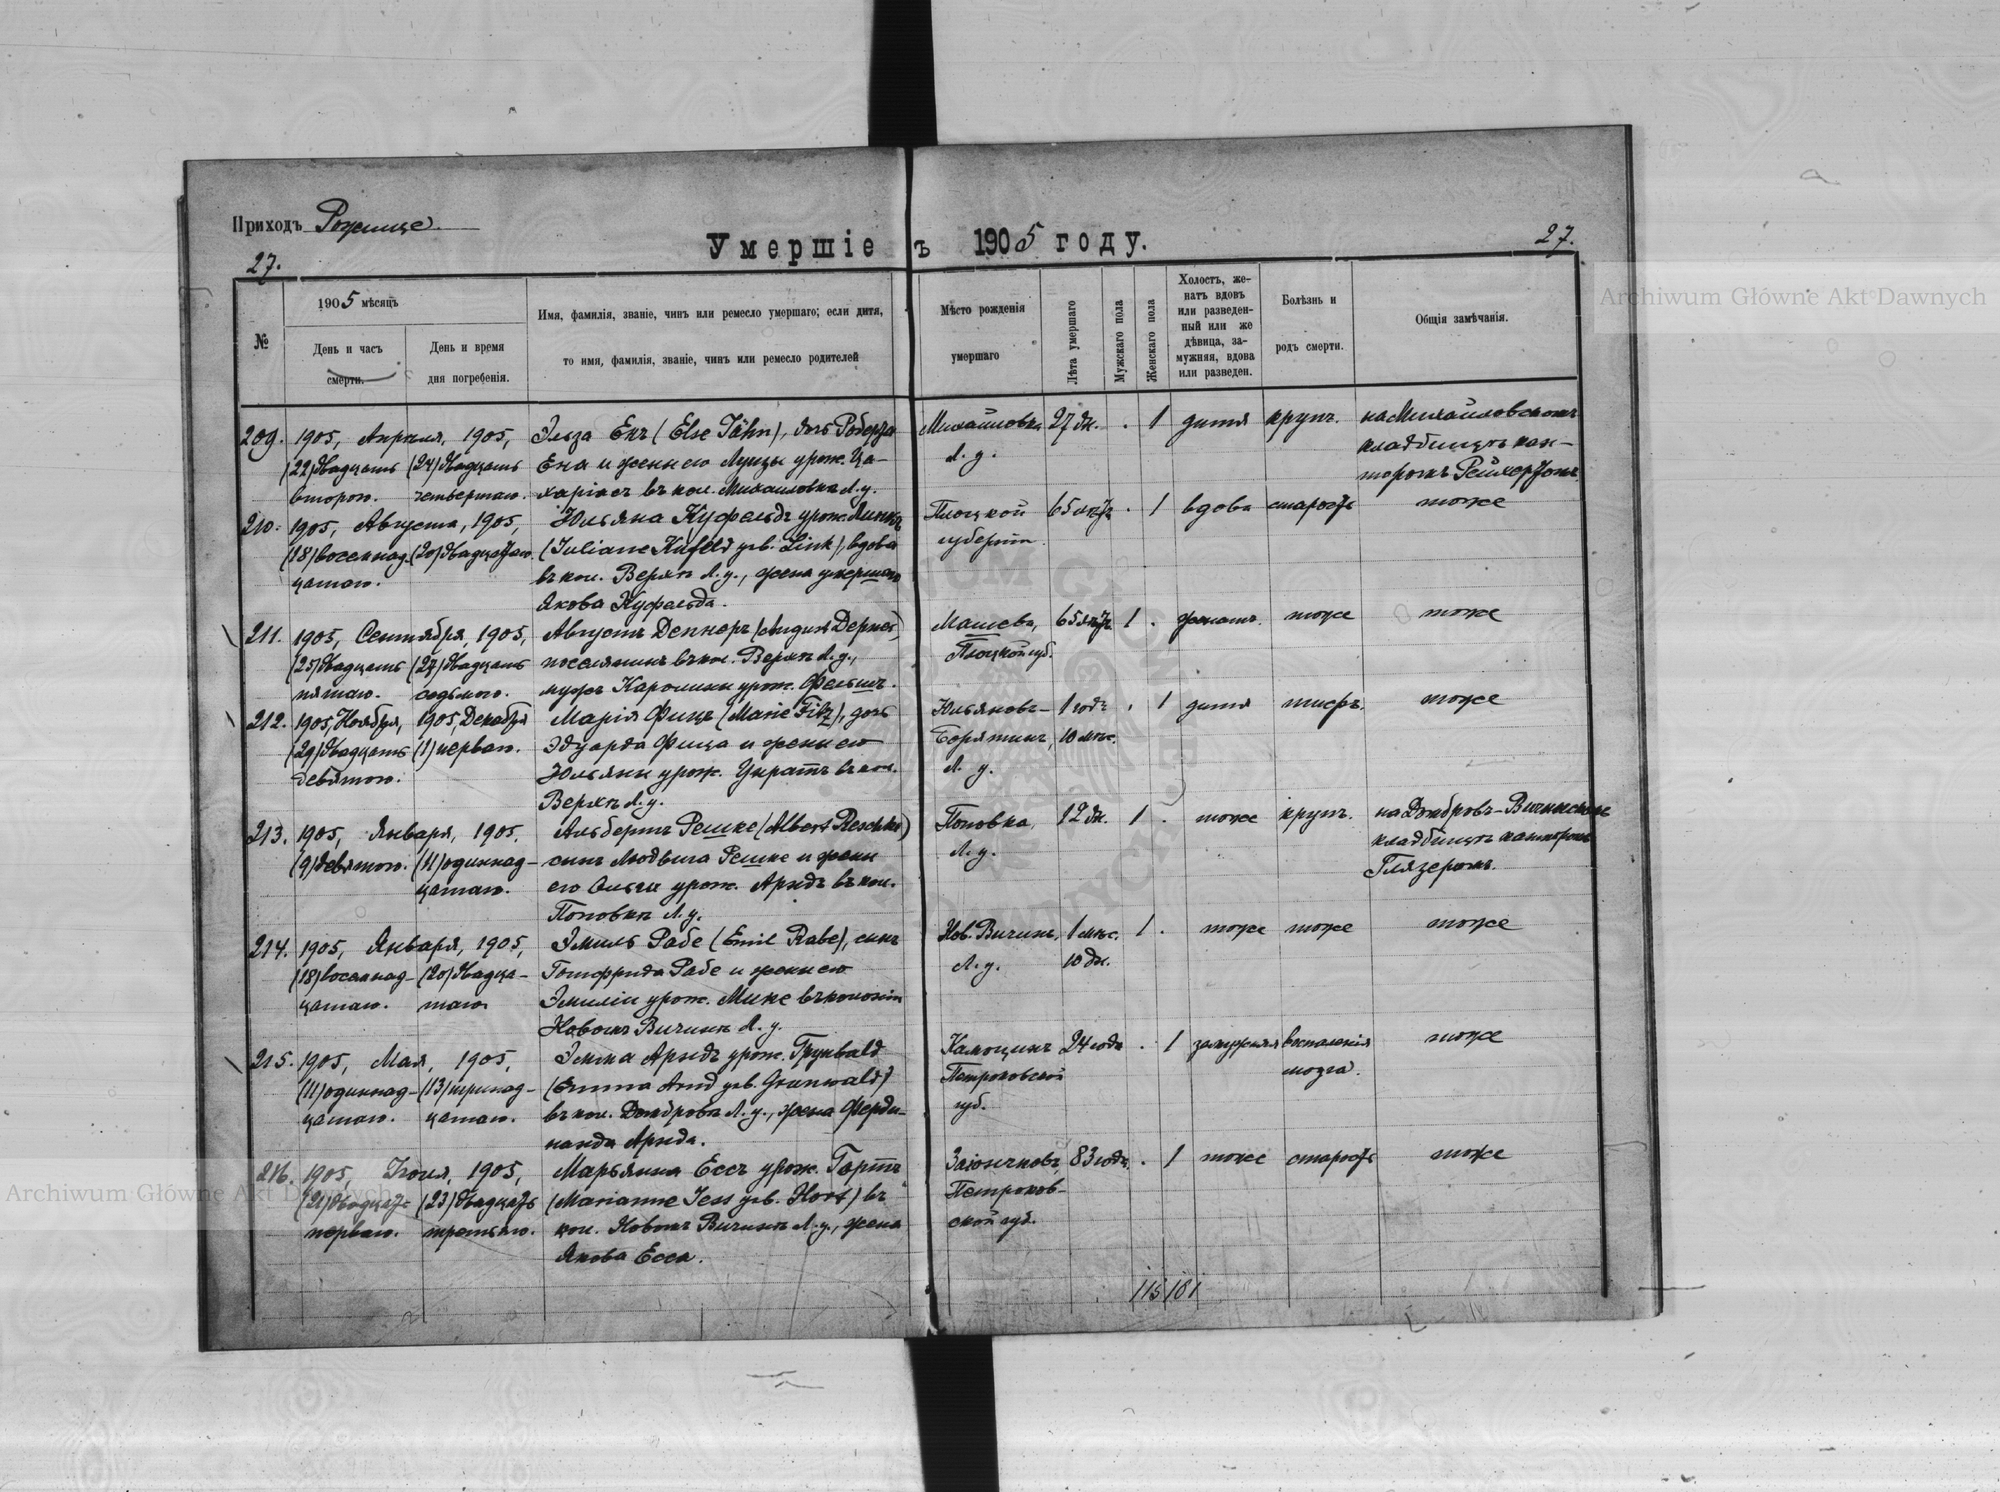 Приходъ Рожище.
Умершіе въ 1905 году.
27.
27.
№
1905 мѣсяцъ
День и часъ
смерти.
День и время
дня погребенія.
Имя, фамилія, званіе, чинъ или ремесло умершаго; если дитя,
то имя, фамилія, званіе, чинъ или ремесло родителей
Мѣсто рожденія
умершаго
Лѣта умершаго
Мужскаго пола
Женскаго пола
Холостъ, же-
натъ вдовъ
или разведен-
ный или же
дѣвица, за-
мужняя, вдова
или разведен.
Болѣзнь и
родъ смерти.
Общія замѣчанія.
209.
1905, Апрѣля, 1905,
(22) двадцать
втораго.
(24) двадцать
четвертаго.
Эльза Енъ (Else Jähn), дочь Роберта
Ена и жены его Луизы урож. Ца-
харіасъ въ кол. Михайловка Л.у.
Михайловка
Л. у.
27 дн.
. 1
дитя
крупъ.
на Михайловскомъ
кладбищѣ кан-
торомъ
210.
1905, Августа, 1905,
(18) восемнад-
цатаго.
(20) двадцатаго.
Юльяна Куфельдъ урож. Линкъ
(Juliane Kufeld geb. Link), вдова
въ кол. Верхъ Л.у., жена умершаго
Якова Куфельда.
Плоцкой
губерніи.
65 лѣтъ
. 1
вдова
старость
тоже
211.
1905, Сентября, 1905,
(25) двадцать
пятаго.
(27) двадцать
седьмого.
Августъ Депнеръ (August Depner)
поселянинъ въ кол. Верхъ Л.у.,
мужъ Каролины урож.
Машева,
Плоцкой губ.
65 лѣтъ
1 .
женатъ.
тоже
тоже
212.
1905, Ноября,
(29) двадцать
девятаго.
1905, Декабря
(1) перваго.
Марія Фицъ (Marie Fitz), дочь
Эдуарда Фица и жены его
Юльяны урож. въ кол.
Верхъ Л.у.
Юльяновъ-
Борятинъ,
Л. у.
1 годъ
10 мѣс.
. 1
дитя
тифъ.
тоже
213.
1905, Января, 1905.
(9) девятаго.
(11) одиннад-
цатаго.
Альбертъ Решке (Albert Reschke)
сынъ Людвига Решке и жены
его Ольги урож. Арндъ въ кол.
Поповкѣ Л.у.
Поповка,
Л.у.
12 дн.
1 .
тоже
крупъ.
на Домбровъ-Вичинскомъ
кладбищѣ канторомъ
Глязеромъ.
214.
1905, Января, 1905,
(18) восемнад-
цатаго.
(20) двадца-
таго
Эмиль Рабе (Emil Rabe), сынъ
Готфрида Рабе и жены его
Эмиліи урож. Милке въ колоніи
Новомъ Вичинѣ Л.у.
Нов. Вичинъ,
Л.у.
1 мѣс.
10 дн.
1 .
тоже
тоже
тоже
215.
1905, Мая, 1905,
(11) одиннад-
цатаго.
(13) тринад-
цатаго.
Эмма Арндъ урож. Грунвальд
(Emma Arnd geb. Grunwald)
въ кол. Домбровѣ Л.у., жена Ферди-
нанда Арнда.
Камоцинъ
Петроковской
губ.
24 года
. 1
замужняя
воспаленія
мозга.
тоже
216.
1905, Іюля, 1905,
(21) двадцать
перваго.
(23) двадцать
третьяго.
Марьянна Ессъ урож. Гортъ
(Marianne Jess geb. Hort) въ
кол. Новомъ Вичинѣ Л.у., жена
Якова Есса.
Заіончковъ,
Петроков-
ской губ.
83 года.
. 1
тоже
старость
тоже
115 101
Archiwum Główne Akt Dawnych
Archiwum Główne Akt Dawnych